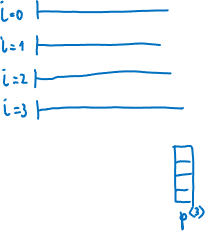 i=0
i=1
i=2
i=3
p^(3)